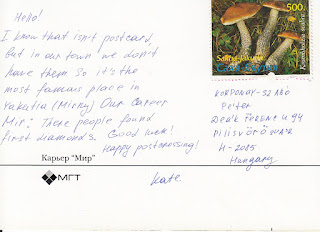 Hello!
I know that isn't postcard,
but in our town we don't
have them so it's the
most famous place in
Yakutia (Mirny) Our Career
Mir. There people found
first diamonds. Good luck!
Happy postcrossing!
Kate.
Карьер "Мир"
МГТ
500
Peter
Deák Ferenc u 94
Pilisvörösvár
H-2085
Hungary